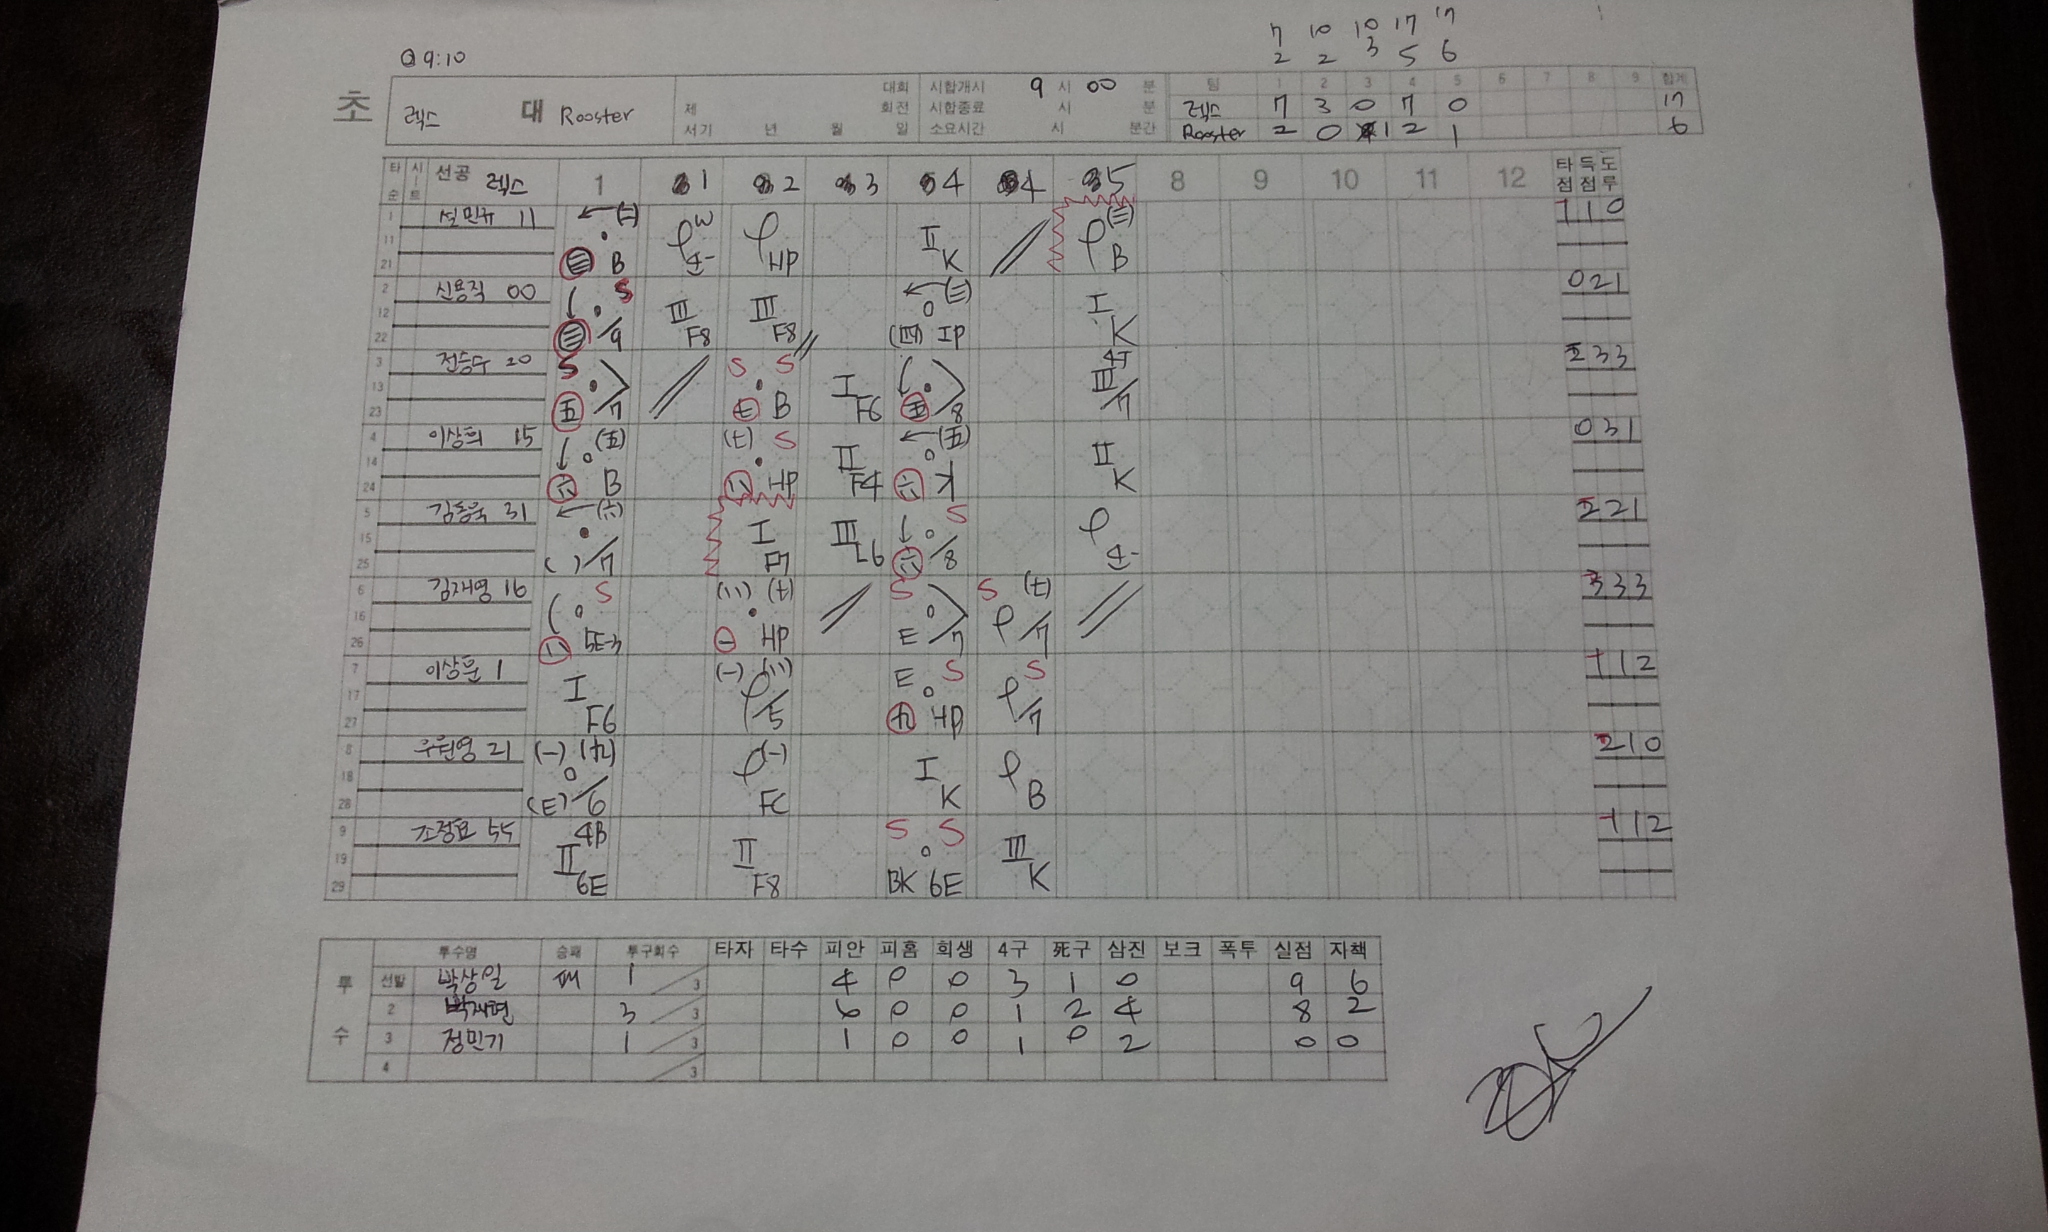 7 10 10 17 17
@ 9:10
2 2 3 5 6
초 렉스 대 Rooster
대회 시합개시 9 시 00 분
제 회전 시합종료 시 분
서기 년 월 일 소요시간 시 분간
팀 1 2 3 4 5 6 7 8 9 합계
렉스 7 3 0 7 0 17
Rooster 2 0 1 2 1 6
타순 시트 선공 렉스 1 1 2 3 4 4 5 8 9 10 11 12 타점 득점 도루
1 11 21 11 B W HP II K (三) B 1 1 0
2 12 22 신용직 00 S 三 /9 III F8 III F8 (三) (四) IP I K 0 2 1
3 13 23 전승수 20 S 五 /7 S S 七 B I F6 五 /8 III /7 2 3 3
4 14 24 이상희 15 (五) 六 B (七) S 八 HP II F4 (五) 六 K II K 0 3 1
5 15 25 김동욱 31 (六) ( ) /7 I F7 III L6 S 六 /8 2 2 1
6 16 26 김재영 16 S 八 5E-3 (八) (七) 一 HP S E /7 S (七) /7 3 3 3
7 17 27 이상훈 1 I F6 (一) (八) /5 E S 九 HP S /7 1 1 2
8 18 28 21 (一) (九) (E) /6 (一) FC I K B 2 1 0
9 19 29 55 4B II 6E II F8 S S BK 6E III K 1 1 2
투수 투수명 승패 투구회수 타자 타수 피안 피홈 희생 4구 死구 삼진 보크 폭투 실점 자책
선발 박상일 패 1 /3 4 0 0 3 1 0 9 6
2 3 /3 6 0 0 1 2 4 8 2
3 정민기 1 /3 1 0 0 1 0 2 0 0
4 /3